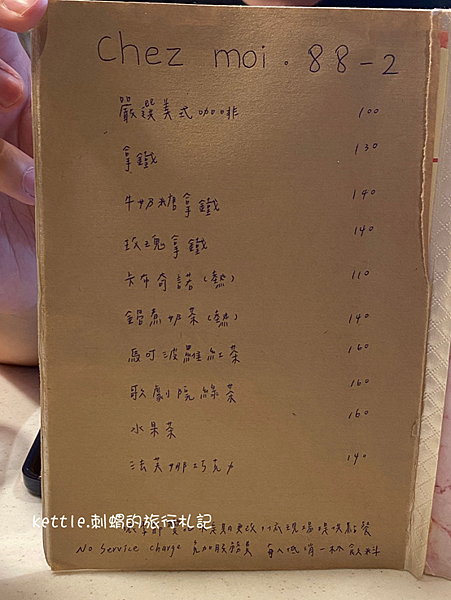 Chez moi . 88-2
嚴選美式咖啡 100
拿鐵 130
牛奶糖拿鐵 140
玫瑰拿鐵 140
卡布奇諾(熱) 110
鍋煮奶茶(熱) 140
馬可波羅紅茶 160
歌劇院綠茶 160
水果茶 160
法芙娜巧克力 140
更改,依現場提供點餐
No Service charge 免加服務費 每人低消一杯飲料
kettle.刺蝟的旅行札記